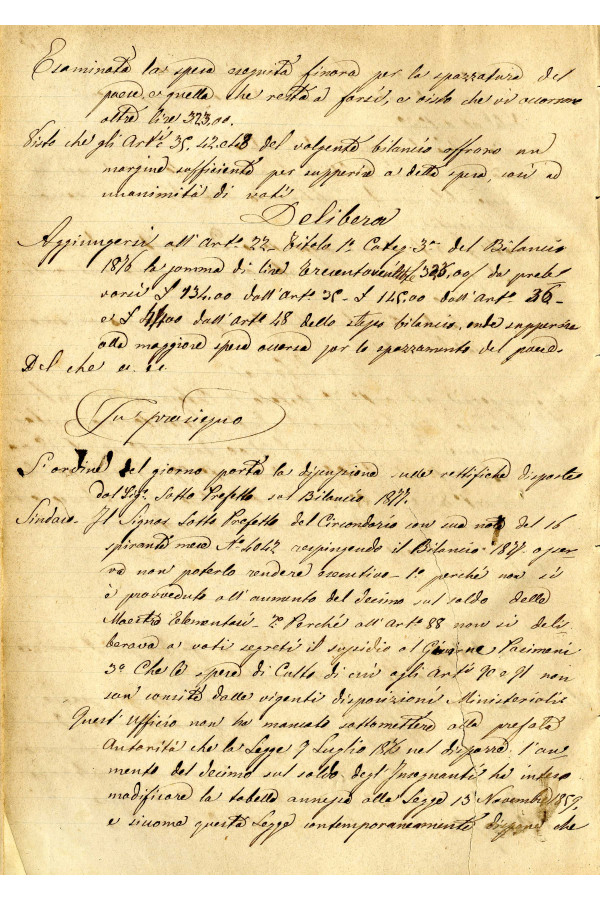 Esaminata la spesa eseguita finora per la spazzatura del
paese, e quella che resta a farsi, e visto che vi occorrono
altre lire 323,00.
Visto che gli Arti. 35. 42. e 48 del volgente bilancio offrono un
margine sufficiente per supperire a detta spesa, così ad
unanimità di voti
Delibera
Aggiungersi all'Arto. 22 Titolo 1o Categ. 3a del Bilancio
1876 la somma di lire 323,00/ da prele
varsi £ 134.00 dall'Arto. 35 - £ 145,00 dall'Arto. 36 -
e £ 44.00 dall'Arto 48 dello stesso bilancio, onde supperire
alla maggiore spesa occorsa per lo spazzamento del paese.
Del che
In prosieguo
L'ordine del giorno porta la discuzione sulle rettifiche disposte
dal Sigr. Sotto Prefetto sul Bilancio 1877.
Sindaco - Il Signor Sotto Prefetto del Circondario con sua nota del 16
spirante mese No 4042 respingendo il Bilancio 1877 osser
va non poterlo rendere esecutivo - 1o perché non si
è provveduto all'aumento del decimo sul soldo delle
Maestre Elementari - 2o Perché all'Arto 88 non si deli
berava a voti segreti il sussidio al Giovine Pacimoni
3o Che le spese di Culto di cui agli Arti 90 e 91 non
son consentite dalle vigenti disposizioni Ministeriali
Quest'Ufficio non ha mancato sottomettere alla prefata
Autorità che la Legge 9 Luglio 1876 nel disporre l'au
mento del decimo sul soldo degl'Insegnanti ha inteso
modificare la tabella annessa alla Legge 13 Novembre 1859,
e siccome questa Legge contemporaneamente dispone che